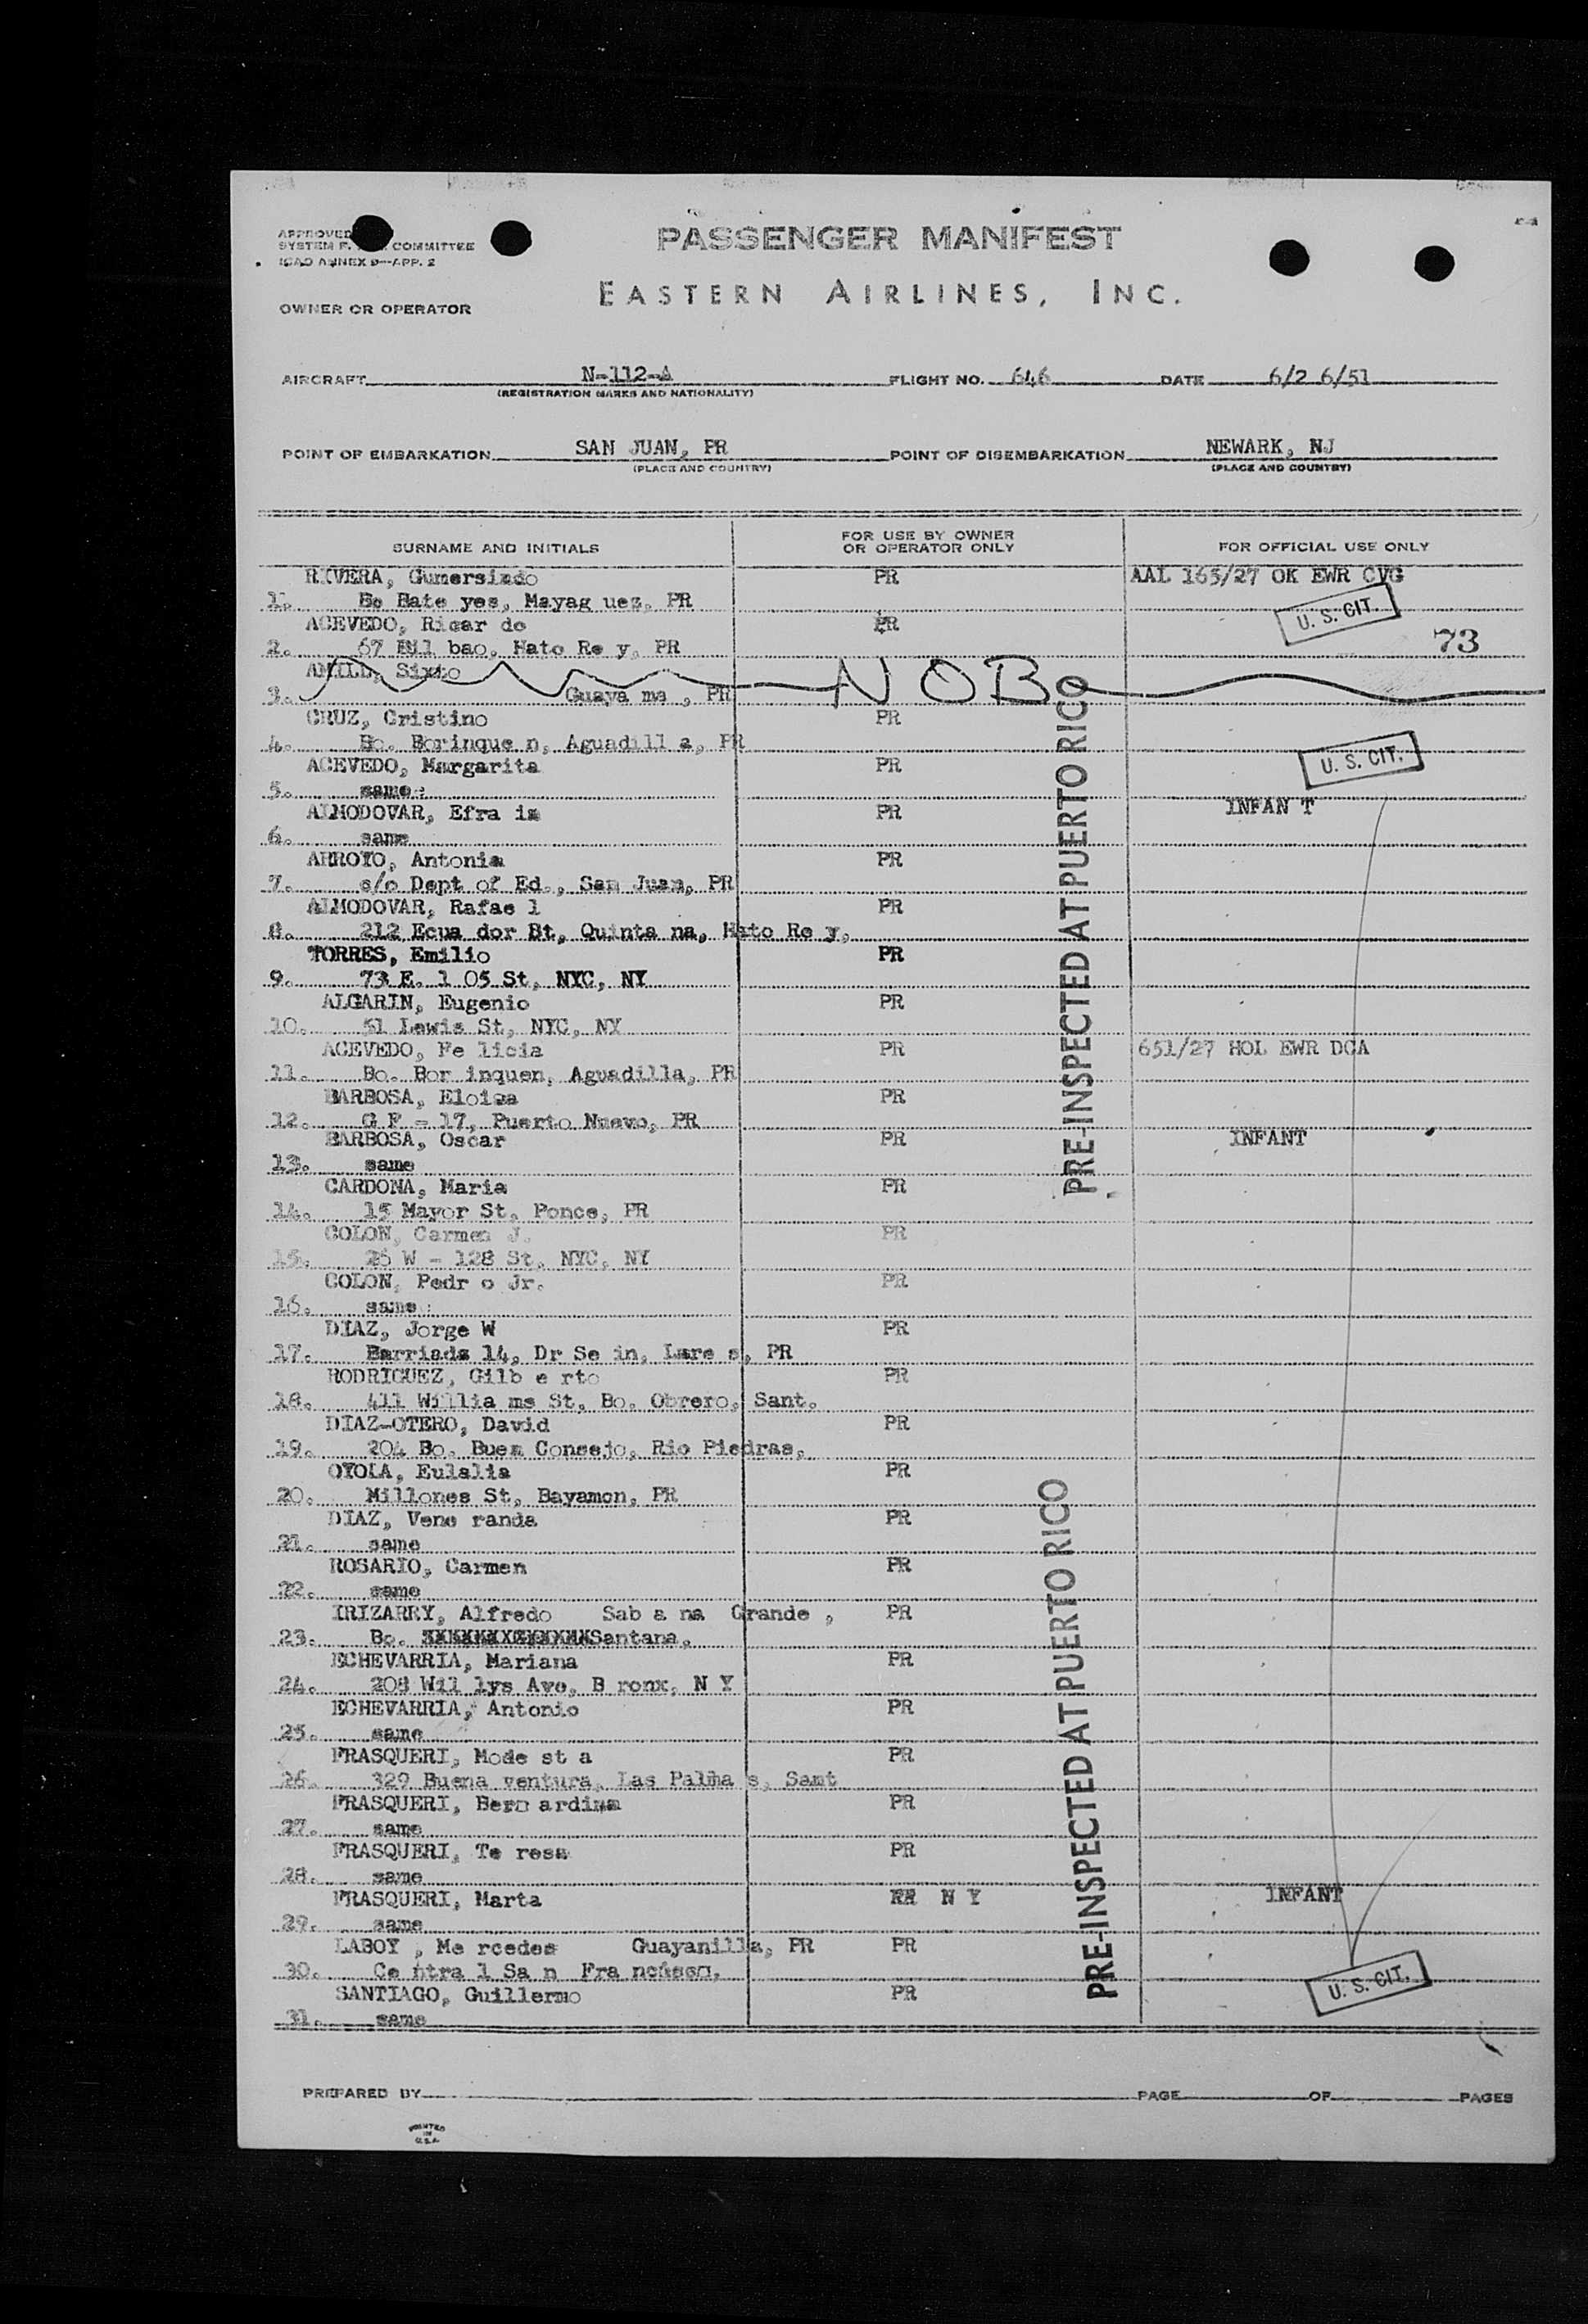 APPROVED
SYSTEM F. COMMITTEE
ICAO ANNEX 9—APP. 2
PASSENGER MANIFEST
EASTERN AIRLINES, INC.
OWNER OR OPERATOR
AIRCRAFT N-112-A FLIGHT NO. 646 DATE 6/2 6/51
(REGISTRATION MARKS AND NATIONALITY)
POINT OF EMBARKATION SAN JUAN, PR POINT OF DISEMBARKATION NEWARK, NJ
(PLACE AND COUNTRY) (PLACE AND COUNTRY)
SURNAME AND INITIALS FOR USE BY OWNER OR OPERATOR ONLY FOR OFFICIAL USE ONLY
RIVERA, Gumersindo PR AAL 165/27 OK EWR CVG
1. Bo Bate yes, Mayag uez, PR U. S. CIT.
ACEVEDO, Ricar do PR
2. 67 Bil bao, Hato Re y, PR 73
AMILL, Sixto NOB
3. Guaya ma , PR
CRUZ, Cristino PR
4. Bo. Borinque n, Aguadill a, PR
ACEVEDO, Margarita PR U. S. CIT.
5. same
ALMODOVAR, Efra in PR INFAN T
6. same
ARROYO, Antonia PR
7. c/o Dept of Ed., San Juan, PR
ALMODOVAR, Rafae l PR
8. 212 Ecua dor St, Quinta na, Hato Re y,
TORRES, Emilio PR
9. 73 E. 1 05 St, NYC, NY
ALGARIN, Eugenio PR
10. 51 Lewis St, NYC, NY
ACEVEDO, Fe licia PR 651/27 HOL EWR DCA
11. Bo. Bor inquen, Aguadilla, PR
BARBOSA, Eloisa PR
12. G F - 17, Puerto Nuevo, PR
BARBOSA, Oscar PR INFANT
13. same
CARDONA, Maria PR
14. 15 Mayor St, Ponce, PR
COLON, Carmen J. PR
15. 25 W - 128 St, NYC, NY
COLON, Pedr o Jr. PR
16. same
DIAZ, Jorge W PR
17. Barriada 14, Dr Se in, Lare s, PR
RODRIGUEZ, Gilb e rto PR
18. 411 Willia ms St, Bo. Obrero, Sant.
DIAZ-OTERO, David PR
19. 204 Bo. Buen Consejo, Rio Piedras,
OYOLA, Eulalia PR
20. Millones St, Bayamon, PR
DIAZ, Vene randa PR
21. same
ROSARIO, Carmen PR
22. same
IRIZARRY, Alfredo Sab a na Grande , PR
23. Bo. Santana,
ECHEVARRIA, Mariana PR
24. 208 Wil lys Ave, B ronx, N Y
ECHEVARRIA, Antonio PR
25. same
FRASQUERI, Mode st a PR
26. 329 Buena ventura, Las Palma s, Sant
FRASQUERI, Bern ardina PR
27. same
FRASQUERI, Te resa PR
28. same
FRASQUERI, Marta N Y INFANT
29. same
LABOY , Me rcedes Guayanilla, PR PR
30. Ce ntra l Sa n Fra
SANTIAGO, Guillermo PR U. S. CIT.
31. same
PRE-INSPECTED AT PUERTO RICO
PRE-INSPECTED AT PUERTO RICO
PREPARED BY PAGE OF PAGES
PRINTED
IN
U.S.A.